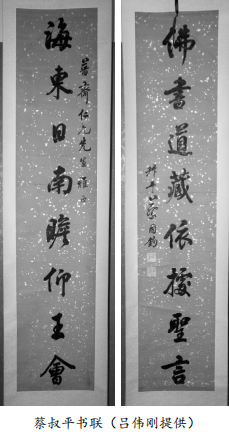 海東日南瞻仰王會
齋仁兄先生雅
佛書道藏依據聖言
叔平蔡
蔡叔平书联（吕伟刚提供）